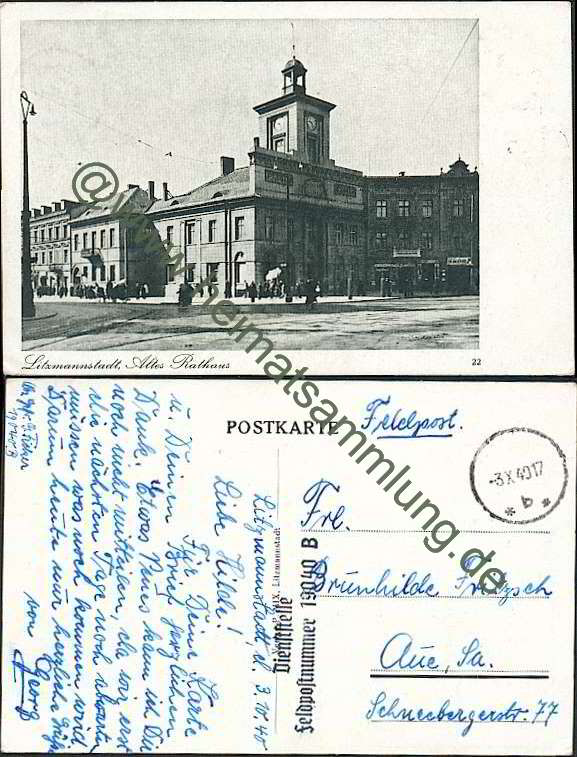 Litzmannstadt, Altes Rathaus
22
@www.heimatsammlung.de
POSTKARTE
Feldpost.
-3.X 40 17
* b *
Frl.
Brunhilde Fritzsch
Aue, Sa.
Schneebergerstr. 77
Dienststelle
Feldpostnummer 19040 B
Litzmannstadt, d. 3.10.40
Liebe Hilde!
Für Deine Karte
u. Deinen Brief herzlichen
Dank. Etwas Neues kann ich Dir
noch nicht mitteilen, da wir erst
die nächsten Tage noch abwarten
müssen was noch kommen wird.
Darum heute nur herzliche Grüße
von
Georg
19040 B